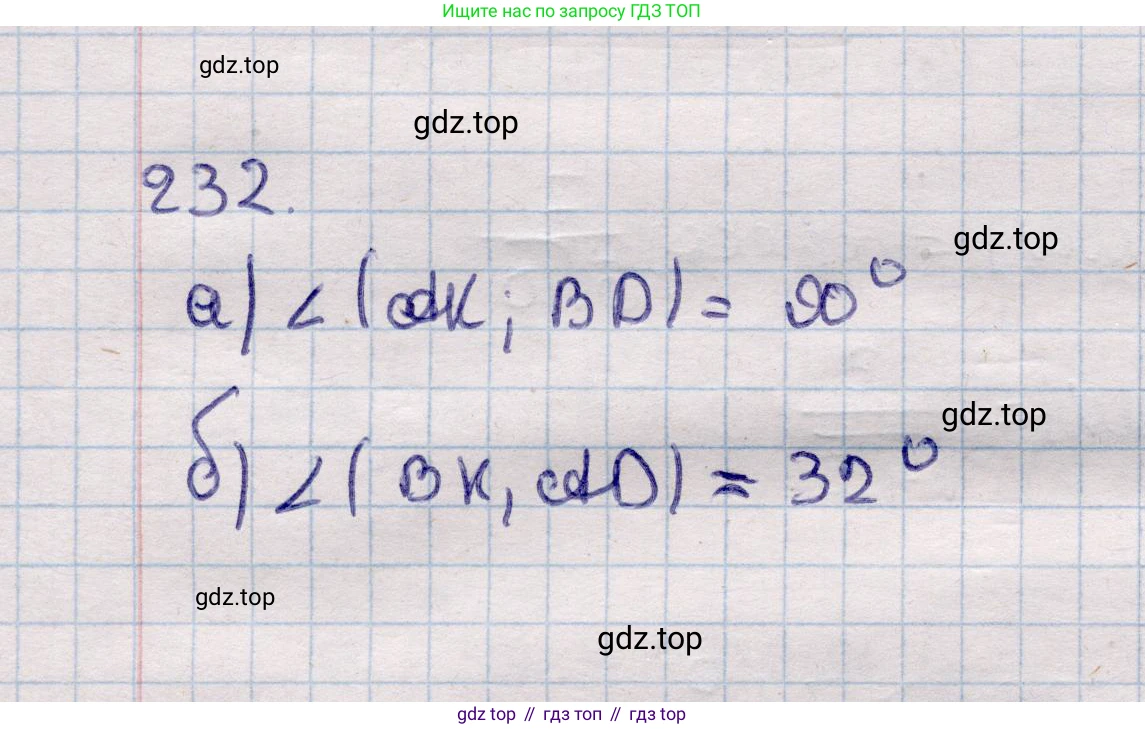 Ищите нас по запросу ГДЗ ТОП
gdz.top
gdz.top
232.
gdz.top
а) ∠(AK; BD) = 90°
gdz.top
б) ∠(BK, AD) = 32°
gdz.top
gdz.top
gdz top // гдз топ // gdz top